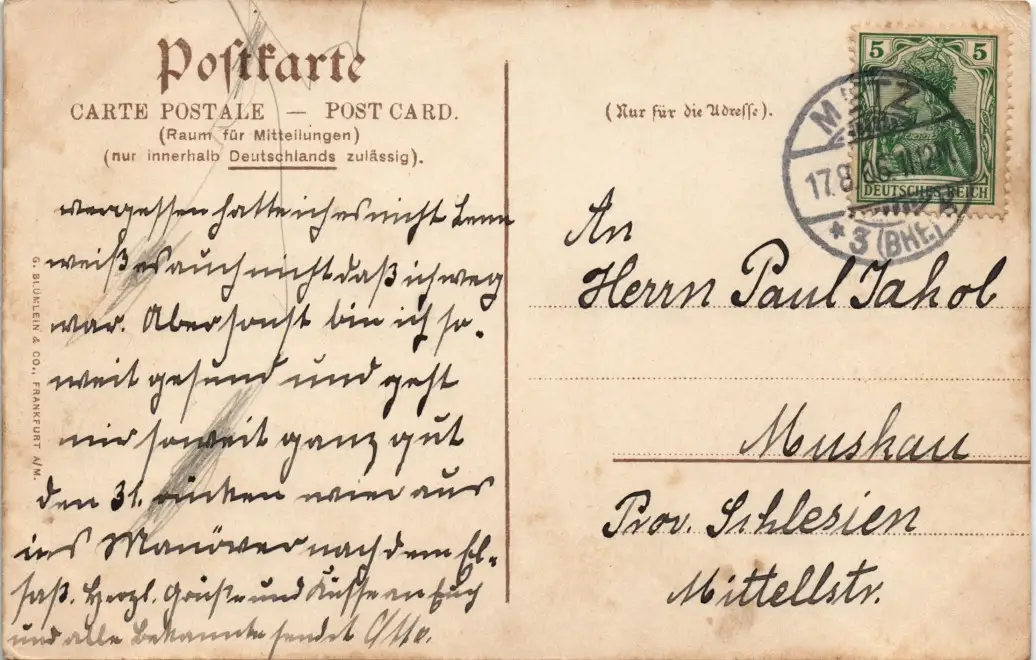 Postkarte
CARTE POSTALE — POST CARD.
(Raum für Mitteilungen)
(nur innerhalb Deutschlands zulässig).
vergessen hatte ich es nicht denn
weiß es auch nicht daß ich weg
war. Aber sonst bin ich so-
weit gesund und geht
mir soweit ganz gut
den 31. rücken wir aus
ins Manöver nach dem El-
saß. Herzl. Grüße und Küsse an Euch
und alle Bekannte sendet Otto.
G. BLÜMLEIN & CO., FRANKFURT A/M.
(Nur für die Adresse).
5 5
DEUTSCHES REICH
METZ
17.8.06. 11-12
* 3 (BHF.)
An
Herrn Paul Jakob
Muskau
Prov. Schlesien
Mittellstr.